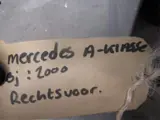 mercedes A-KLASSE
Bj : 2000
Rechtsvoor.